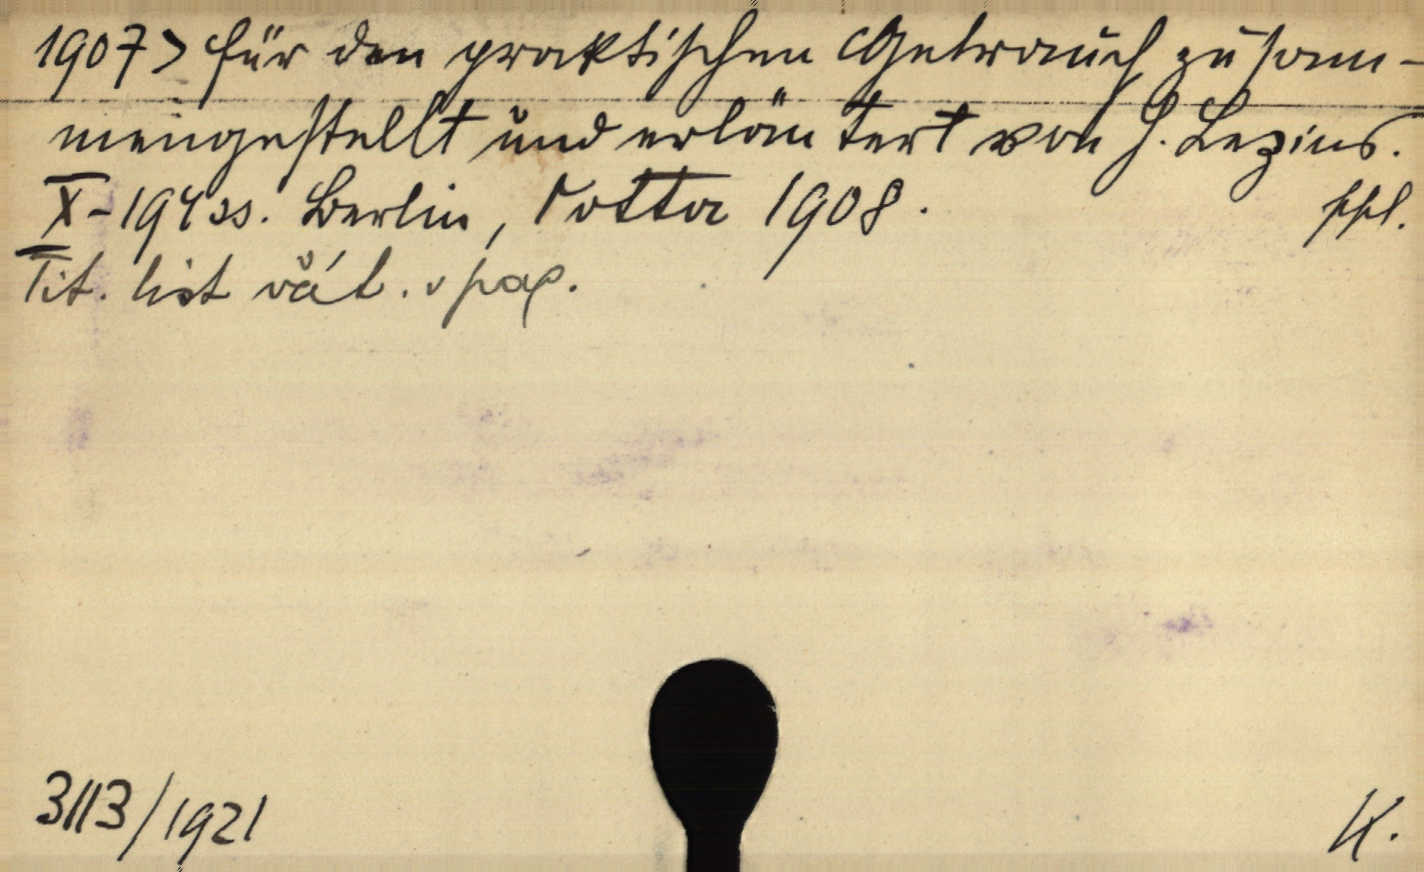 1907> für den praktischen Gebrauch zusam-
mengestellt und erläutert von H. Lezius.
X-194 ss. Berlin, Cotta 1908. ppl.
Tit. list váz. v pap.
3113/1921
K.